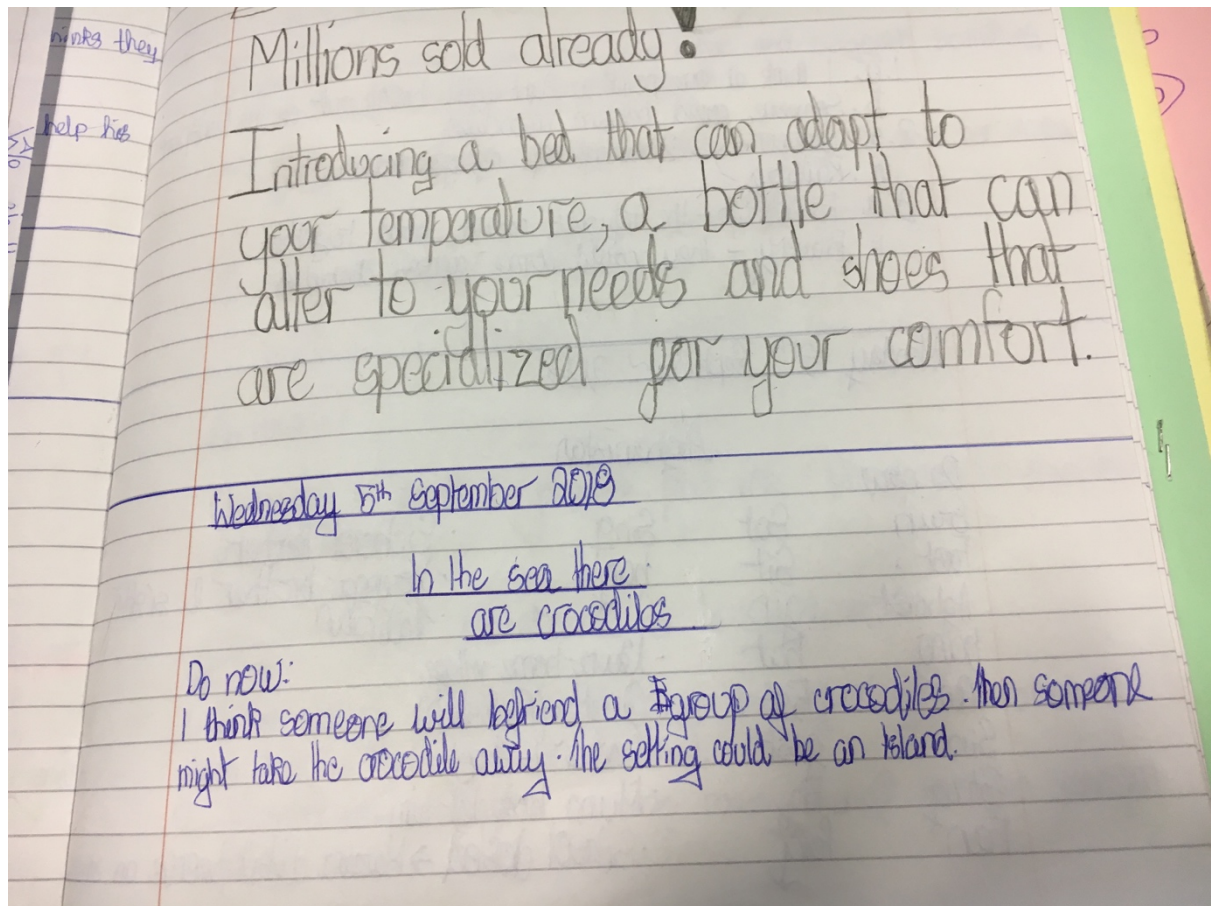 hinks they
help his
Millions sold already!
Introducing a bed that can adapt to
your temperature, a bottle that can
alter to your needs and shoes that
are specialized for your comfort.
Wednesday 5th September 2018
In the sea there
are crocodiles
Do now:
I think someone will befriend a group of crocodiles. then someone
might take the crocodile away. the setting could be an island.